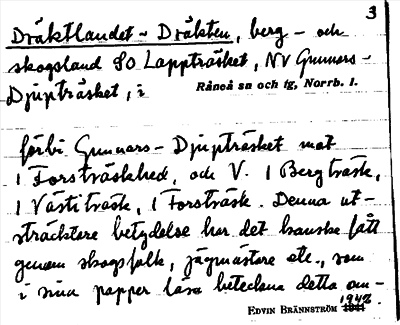 3
Dräktlandet - Dräkten, berg- och
skogsland SO Lappträsket, NV Gunnars-
Djupträsket, i
Råneå sn och tg, Norrb. l.
förbi Gunnars-Djupträsket mot
1 Forsträskhed, och V. 1 Bergträsk,
1 Västiträsk, 1 Forsträsk. Denna ut-
sträcktare betydelse har det kanske fått
genom skogsfolk, jägmästare etc., som
i sina papper låta beteckna detta om-
EDVIN BRÄNNSTRÖM 1942